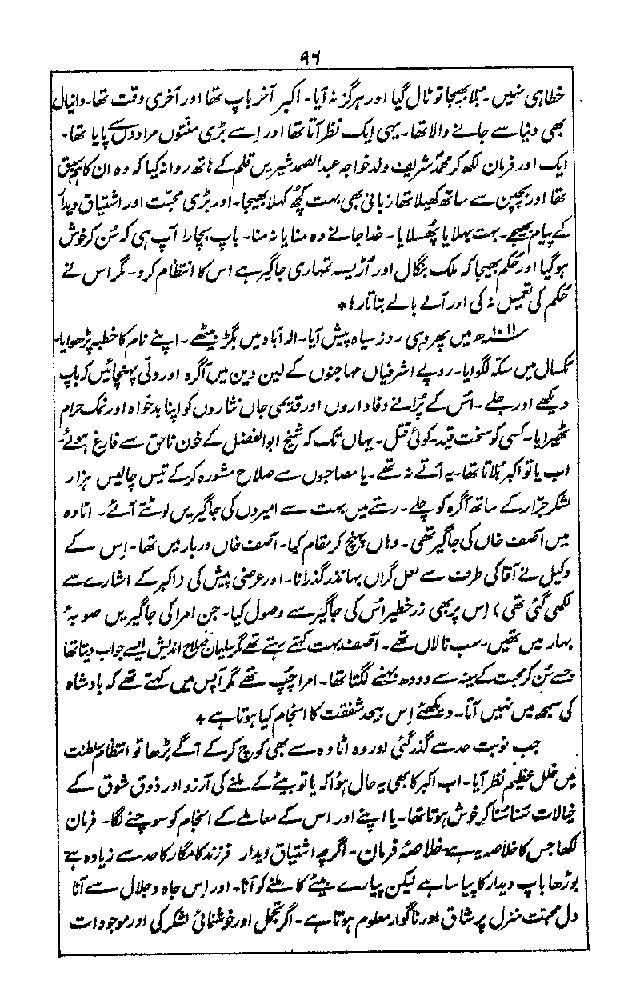 ۹۶
خطا ہی نہیں۔ بلا بھیجا تو ٹال گیا اور ہرگز نہ آیا۔ اکبر آخر باپ تھا اور آخری وقت تھا۔ دانیال
بھی دنیا سے جانے والا تھا۔ یہی ایک نظر آتا تھا اور اسے بڑی منتوں مرادوں سے پایا تھا۔
ایک اور فرمان لکھ کر محمد شریف ولد خواجہ عبدالصمد شیریں قلم کے ہاتھ روانہ کیا کہ وہ ان کا ہم سبق
تھا اور بچپن سے ساتھ کھیلا تھا۔ زبانی بھی بہت کچھ کہلا بھیجا۔ اور بڑی محبت اور اشتیاق دیدار
کے پیام بھیجے۔ بہت بہلایا پھسلایا۔ خدا جانے وہ منا یا نہ منا۔ باپ بچارا آپ ہی کہ سُن کر خوش
ہو گیا اور حکم بھیجا کہ ملک بنگال اور اُڑیسہ تمہاری جاگیر ہے اس کا انتظام کرو۔ مگر اس نے
حکم کی تعمیل نہ کی اور آئے بالے بتاتا رہا *
۱۰۱۱ھ میں پھر وہی روز سیاہ پیش آیا۔ الہ آباد میں بگڑ بیٹھے۔ اپنے نام کا خطبہ پڑھوایا
ٹکسال میں سکہ لگوایا۔ روپے اشرفیاں مہاجنوں کے لین دین میں آگرہ اور دلی پہنچائیں کہ باپ
دیکھے اور جلے۔ اس کے پُرانے وفاداروں اور قدیمی جاں نثاروں کو اپنا بدخواہ اور نمک حرام
ٹھیرایا۔ کسی کو سخت قید۔ کوئی قتل۔ یہاں تک کہ شیخ ابوالفضل کے خون ناحق سے فارغ ہوئے۔
اب یا تو اکبر بلاتا تھا۔ یہ آتے نہ تھے۔ یا مصاحبوں سے صلاح مشورہ کر کے تیس چالیس ہزار
لشکر جرار کے ساتھ آگرہ کو چلے۔ رستے میں بہت سے امیروں کی جاگیریں لوٹتے آئے۔ اٹاوہ
میں آصف خاں کی جاگیر تھی۔ وہاں پہنچ کر مقام کیا۔ آصف خاں دربار میں تھا۔ اس کے
وکیل نے آقا کی طرف سے لعل گراں بہا نذر گذرانا۔ اور عرضی پیش کی (اکبر کے اشارے سے
لکھی گئی تھی) اس پر بھی زر خطیر اُس کی جاگیر سے وصول کیا۔ جن امرا کی جاگیریں صوبہ
بہار میں تھیں۔ سب نالاں تھے۔ آصف بہت کہتے رہتے تھے مگر سلیمان صلاح اندیش ایسے جواب دیتا تھا
جسے سُن کر محبت کے سینہ سے دودھ بہنے لگتا تھا۔ امرا چپ تھے مگر آپس میں کہتے تھے کہ بادشاہ
کی سمجھ میں نہیں آتا۔ دیکھئے اس بیحد شفقت کا انجام کیا ہوتا ہے *
جب نوبت حد سے گذر گئی اور وہ اٹاوہ سے بھی کوچ کر کے آگے بڑھا تو انتظام سلطنت
میں خلل عظیم نظر آیا۔ اب اکبر کا بھی یہ حال ہوا کہ یا تو بیٹے کے ملنے کی آرزو اور ذوق شوق کے
خیالات سُنا سُنا کر خوش ہوتا تھا۔ یا اپنے اور اس کے معاملے کے انجام کو سوچنے لگا۔ فرمان
لکھا جس کا خلاصہ یہ ہے خلاصۂ فرمان۔ اگرچہ اشتیاق دیدار فرزند کامگار کا حد سے زیادہ ہے
بوڑھا باپ دیدار کا پیاسا ہے لیکن پیارے بیٹے کا ملنے کو آنا۔ اور اس جاہ و جلال سے آنا
دل محبت منزل پر شاق اور ناگوار معلوم ہوتا ہے۔ اگر تجمل اور خوشنمائی لشکر کی اور موجودات